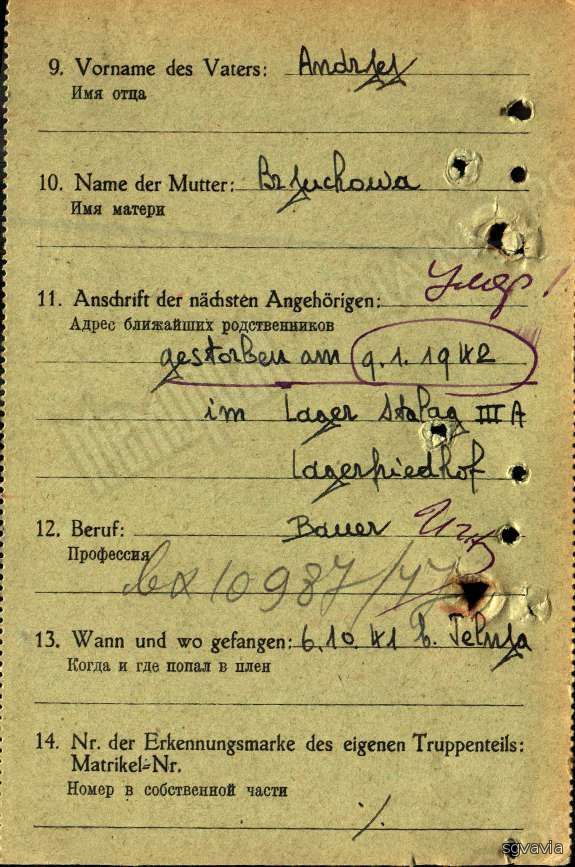 9. Vorname des Vaters: Andrjej
Имя отца
10. Name der Mutter: Brjuchowa
Имя матери
11. Anschrift der nächsten Angehörigen: Умер!
Адрес ближайших родственников
gestorben am 9.1.1942
im Lager Stalag III A
Lagerfriedhof
12. Beruf: Bauer
Профессия
вх 10987/47
13. Wann und wo gefangen: 6.10.41 b. Jelnja
Когда и где попал в плен
14. Nr. der Erkennungsmarke des eigenen Truppenteils:
Matrikel-Nr.
Номер в собственной части
٪
sgvavia